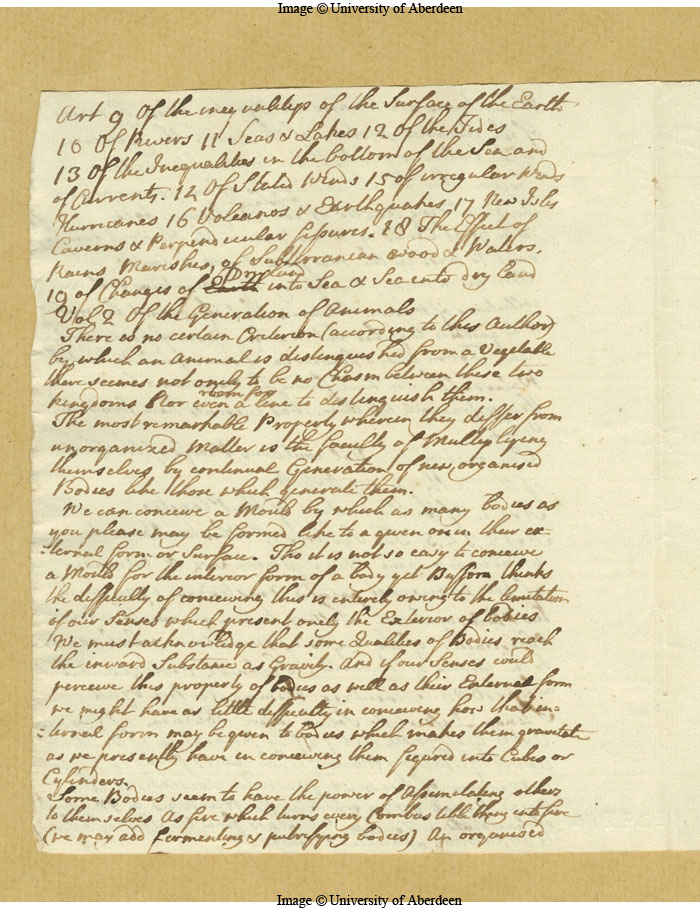 Image © University of Aberdeen
Art 9 Of the inequalitys of the Surface of the Earth
10 Of Rivers 11 Seas & Lakes 12 Of the Tides
13 Of the Inequalities in the bottom of the Sea and
of Currents. 12 Of Stated Winds 15 of irregular Winds
Hurricanes 16 Volcanos & Earthquakes 17 New Isles
Caverns & Perpendicular fissures. 18 The Effect of
Rains Marishes, of Subterranean wood & Waters.
Dry land
19 of Changes of Earth into Sea & Sea into dry Land
Vol 2 Of the Generation of Animals
There is no certain Criterion (according to this Author)
by which an Animal is distinguished from a Vegetable
there seems not onely to be no Chasm between these two
room for
kingdoms Nor even a line to distinguish them.
The most remarkable Property wherein they differ from
unorganized Matter is the faculty of Multiplying
themselves by continual Generation of new organised
Bodies like those which generate them.
We can conceive a Mould by which as many bodies as
you please may be formed like to a given one in their ex-
-ternal form or Surface. Tho it is not so easy to conceive
a Mould for the interior form of a body yet Buffon thinks
the difficulty of conceiving this is entirely owing to the limitation
of our Senses which present onely the Exterior of bodies
We must acknowledge that some Qualities of Bodies reach
the inward Substance as Gravity. And if our Senses could
perceive this property of bodies as well as their External form
we might have as little difficulty in conceiving how that in-
-ternal form may be given to bodies which makes them gravitate
as we presently have in conceiving them figured into Cubes or
Cylinders.
Some Bodies seem to have the power of Assimilating others
to themselves As fire which turns every Combustible thing into fire
(we may add fermenting & putrifying bodies) An organised
Image © University of Aberdeen